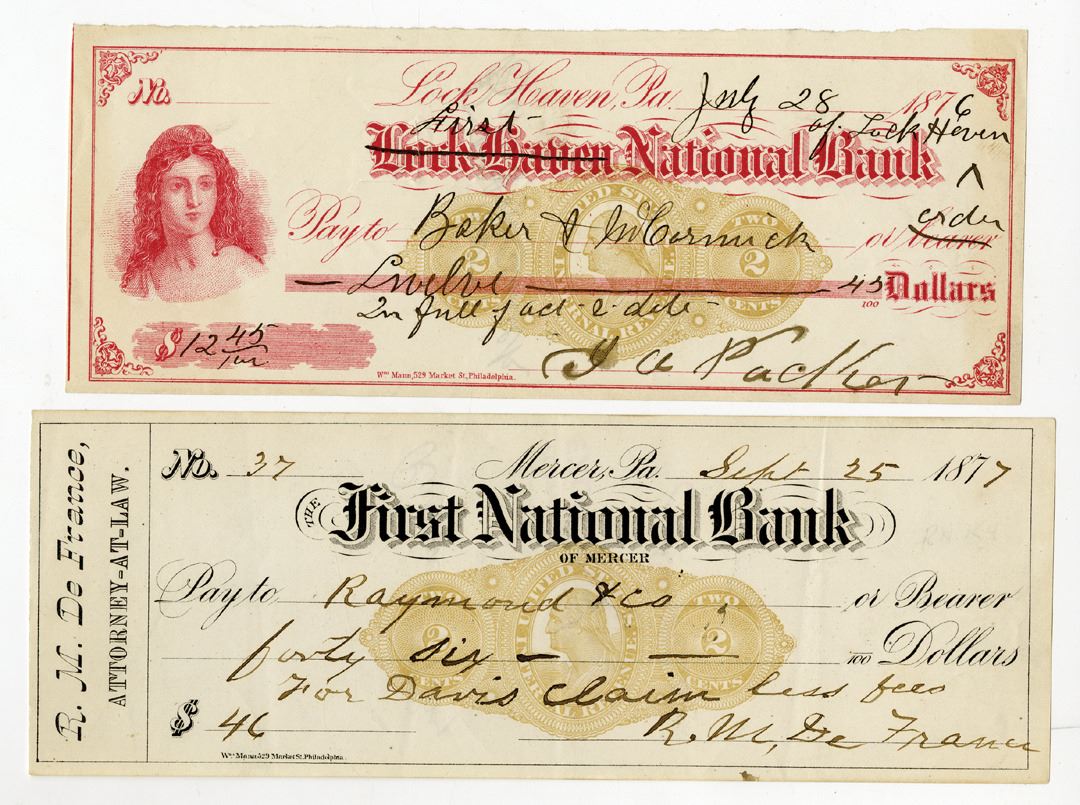 No. Lock Haven, Pa. July 28 1876
First of Lock Haven
Lock Haven National Bank
Pay to Baker & McCormick or bearer order
Twelve 45/100 Dollars
UNITED STATES
TWO 2 CENTS
TWO 2 CENTS
INTERNAL REVENUE
In full of act
$ 12 45/100
Packer
Wm. Mann, 529 Market St., Philadelphia.
R. M. De France,
ATTORNEY-AT-LAW.
No. 37 Mercer, Pa. Sept 25 1877
THE First National Bank
OF MERCER
Pay to Raymond & Co or Bearer
forty six — — /100 Dollars
UNITED STATES
TWO 2 CENTS
TWO 2 CENTS
INTERNAL REVENUE
For Davis claim less fees
$ 46 R. M. De France
Wm. Mann 529 Market St. Philadelphia.